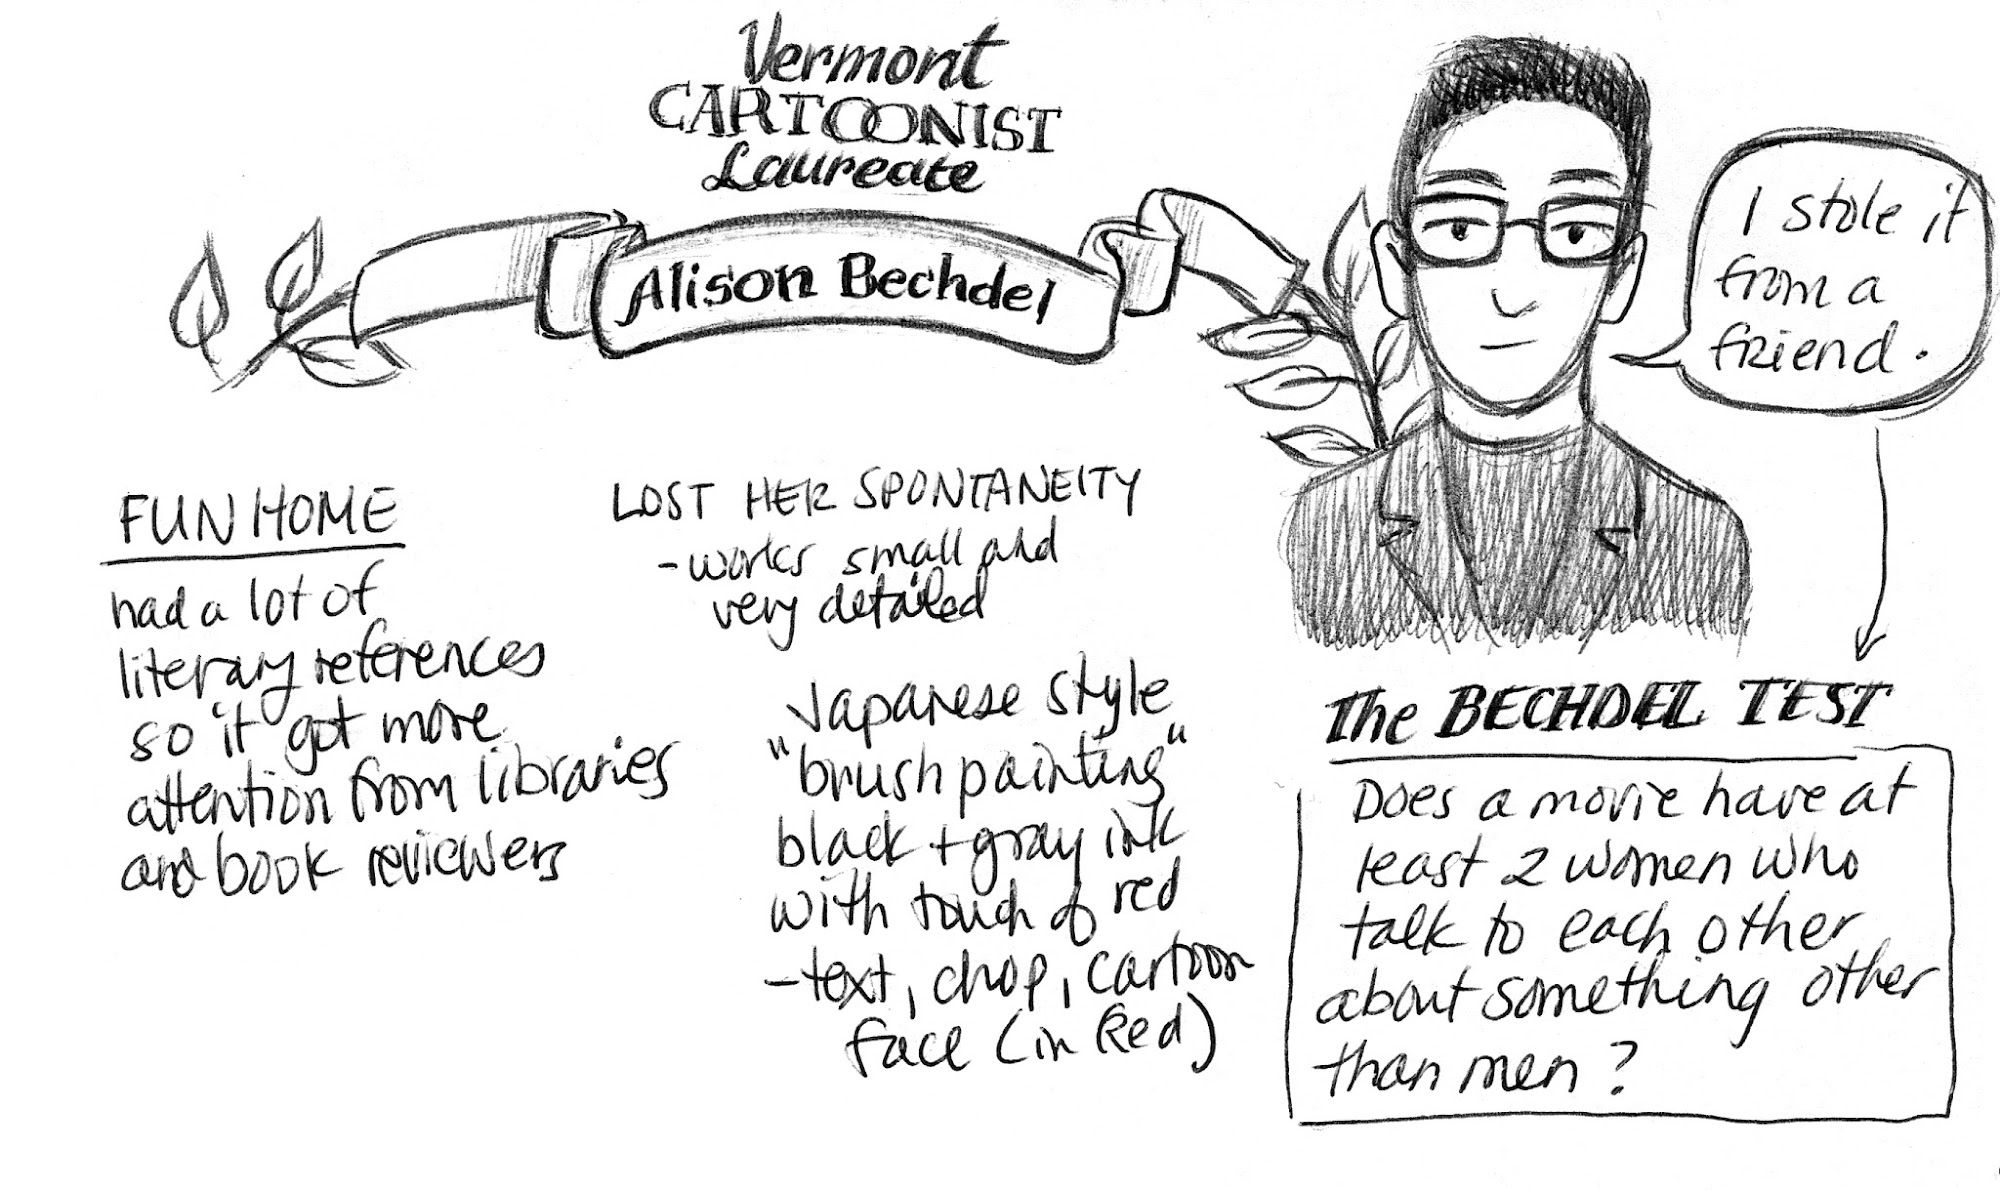 Vermont
CARTOONIST
Laureate
Alison Bechdel
I stole it
from a
friend.
FUN HOME
had a lot of
literary references
so it got more
attention from libraries
and book reviewers
LOST HER SPONTANEITY
- works small and
very detailed
Japanese style
"brush painting"
black + gray ink
with touch of red
- text, chop, cartoon
face (in Red)
The BECHDEL TEST
Does a movie have at
least 2 women who
talk to each other
about something other
than men?